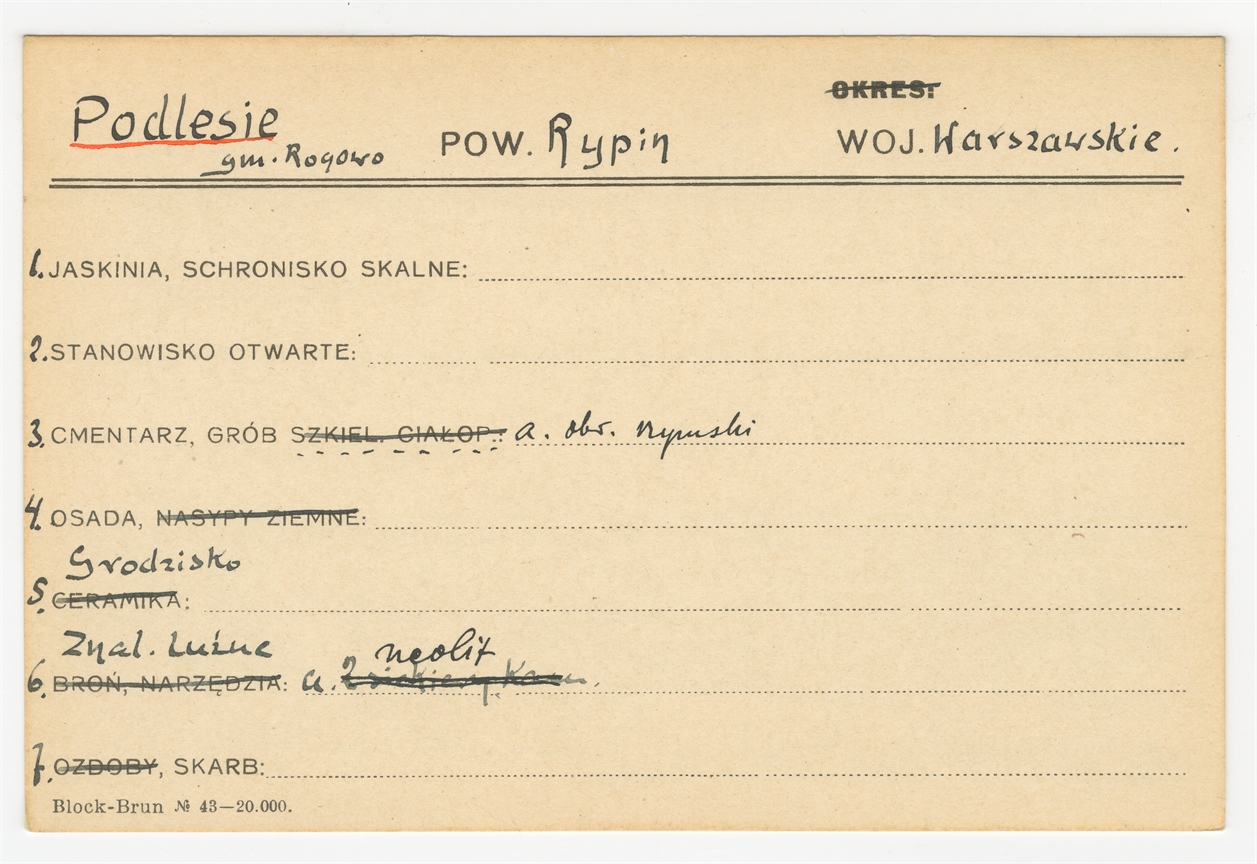 OKRES:
Podlesie POW. Rypin WOJ. Warszawskie.
gm. Rogowo
1. JASKINIA, SCHRONISKO SKALNE:
2. STANOWISKO OTWARTE:
3. CMENTARZ, GRÓB SZKIEL. CIAŁOP.: a. obr. rzymski
4. OSADA, NASYPY ZIEMNE:
Grodzisko
5. CERAMIKA:
Znal. Luźne neolit
6. BROŃ, NARZĘDZIA: a. 2 siekiery, Kam.
7. OZDOBY, SKARB:
Block-Brun № 43—20.000.